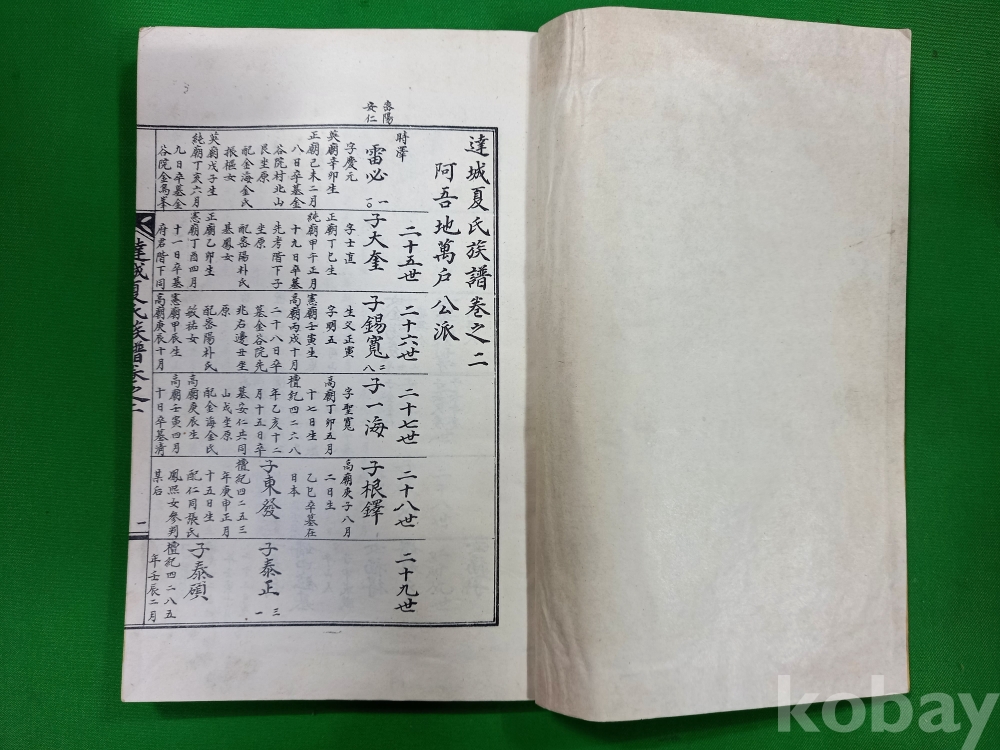 達城夏氏族譜卷之二
阿吾地萬戶公派
番陽
安仁
時澤
雷必
一〇
字慶元
英廟辛卯生
正廟己未二月
八日卒墓金
谷院村北山
艮坐原
配金海金氏
振樞女
英廟戊子生
純廟丁亥六月
九日卒墓金
谷院金烏峯
二十五世
子大奎
字士直
正廟丁巳生
純廟甲午正月
十九日卒墓
先考階下子
坐原
配密陽朴氏
基鳳女
正廟乙卯生
憲廟丁酉四月
十一日卒墓
府君階下同
二十六世
子錫寬
二八
生父正寅
字明五
憲廟壬寅生
高廟丙戌十月
二十八日卒
墓金谷院先
兆右邊丑坐
原
配密陽朴氏
敏祐女
憲廟甲辰生
高廟庚辰十月
二十七世
子一海
字聖寬
高廟丁卯五月
十七日生
檀紀四二六八
年乙亥十二
月十五日卒
墓安仁共同
山戌坐原
配金海金氏
高廟庚辰生
高廟壬寅四月
十日卒墓淸
二十八世
子根鐸
高廟庚子八月
二日生
乙巳卒墓在
日本
子東發
檀紀四二五三
年庚申正月
十五日生
配仁同張氏
鳳熙女參判
某后
二十九世
子泰正
三一
子泰碩
檀紀四二八五
年壬辰二月
達城夏氏族譜卷之二
一
3
kobay